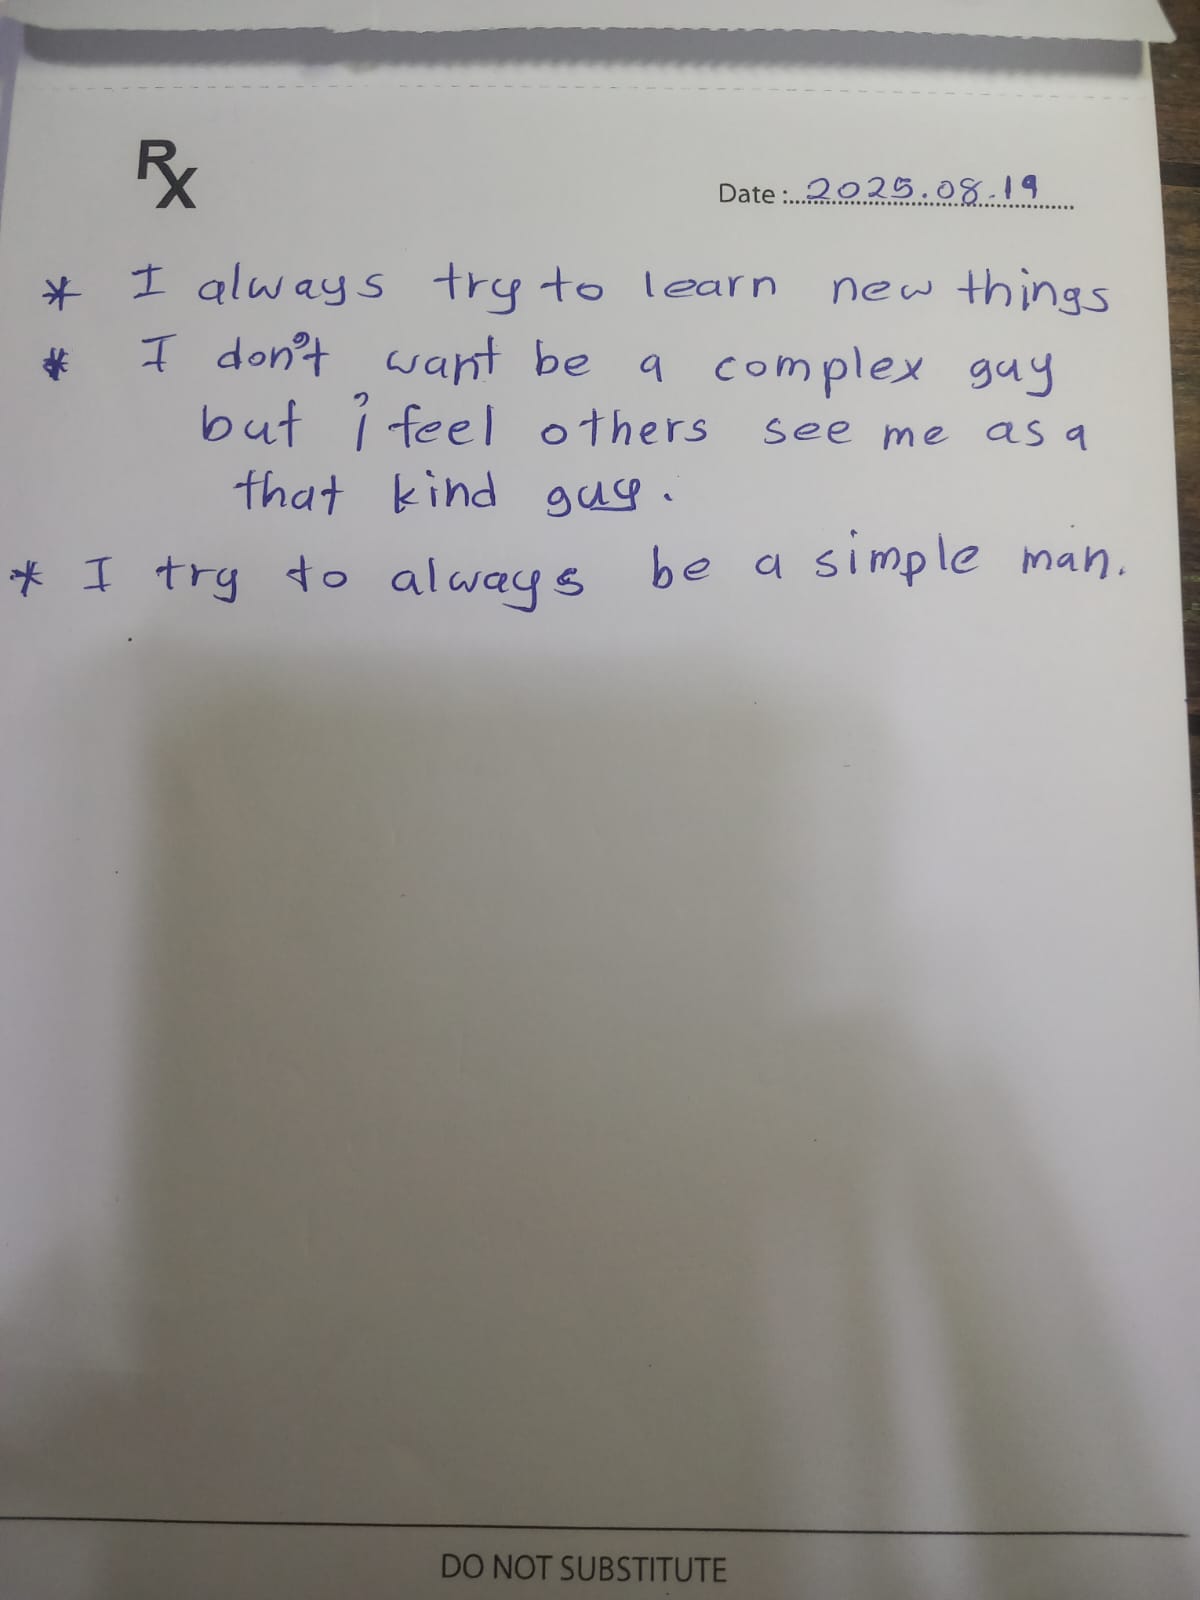 Rx
Date : 2025.08.19
* I always try to learn new things
* I don't want be a complex guy
but i feel others see me as a
that kind guy.
* I try to always be a simple man.
DO NOT SUBSTITUTE